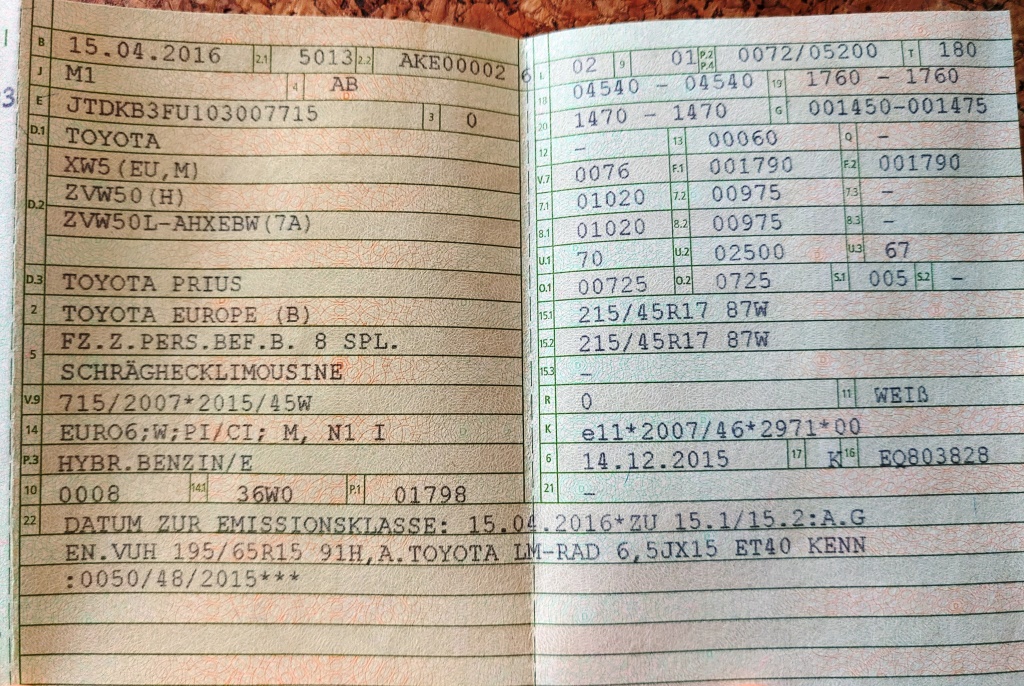 B 15.04.2016 2.1 5013 2.2 AKE00002 6
J M1 4 AB
3
E JTDKB3FU103007715 3 0
D.1 TOYOTA
D.2 XW5(EU,M)
ZVW50(H)
ZVW50L-AHXEBW(7A)
D.3 TOYOTA PRIUS
2 TOYOTA EUROPE (B)
5 FZ.Z.PERS.BEF.B. 8 SPL.
SCHRÄGHECKLIMOUSINE
V.9 715/2007*2015/45W
14 EURO6;W;PI/CI; M, N1 I
P.3 HYBR.BENZIN/E
10 0008 14.1 36W0 P.1 01798
L 02 9 01 P.2 P.4 0072/05200 T 180
18 04540 - 04540 19 1760 - 1760
20 1470 - 1470 G 001450-001475
12 - 13 00060 Q -
V.7 0076 F.1 001790 F.2 001790
7.1 01020 7.2 00975 7.3 -
8.1 01020 8.2 00975 8.3 -
U.1 70 U.2 02500 U.3 67
O.1 00725 O.2 0725 S.1 005 S.2 -
15.1 215/45R17 87W
15.2 215/45R17 87W
15.3 -
R 0 11 WEIß
K e11*2007/46*2971*00
6 14.12.2015 17 K 16 EQ803828
21 -
22 DATUM ZUR EMISSIONSKLASSE: 15.04.2016*ZU 15.1/15.2:A.G
EN.VUH 195/65R15 91H,A.TOYOTA LM-RAD 6,5JX15 ET40 KENN
:0050/48/2015***